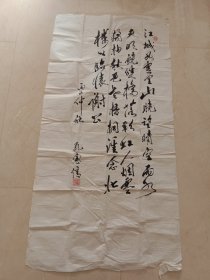 江城如画里山晚望晴空两水
夹明镜双桥落彩虹人烟寒
橘柚秋色老梧桐谁念北
楼上临怀谢公
仲秋